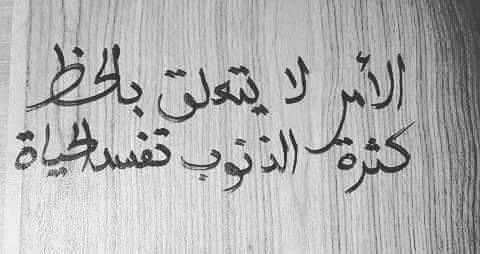 الأمر لا يتعلق بالحظ
كثرة الذنوب تفسد الحياة